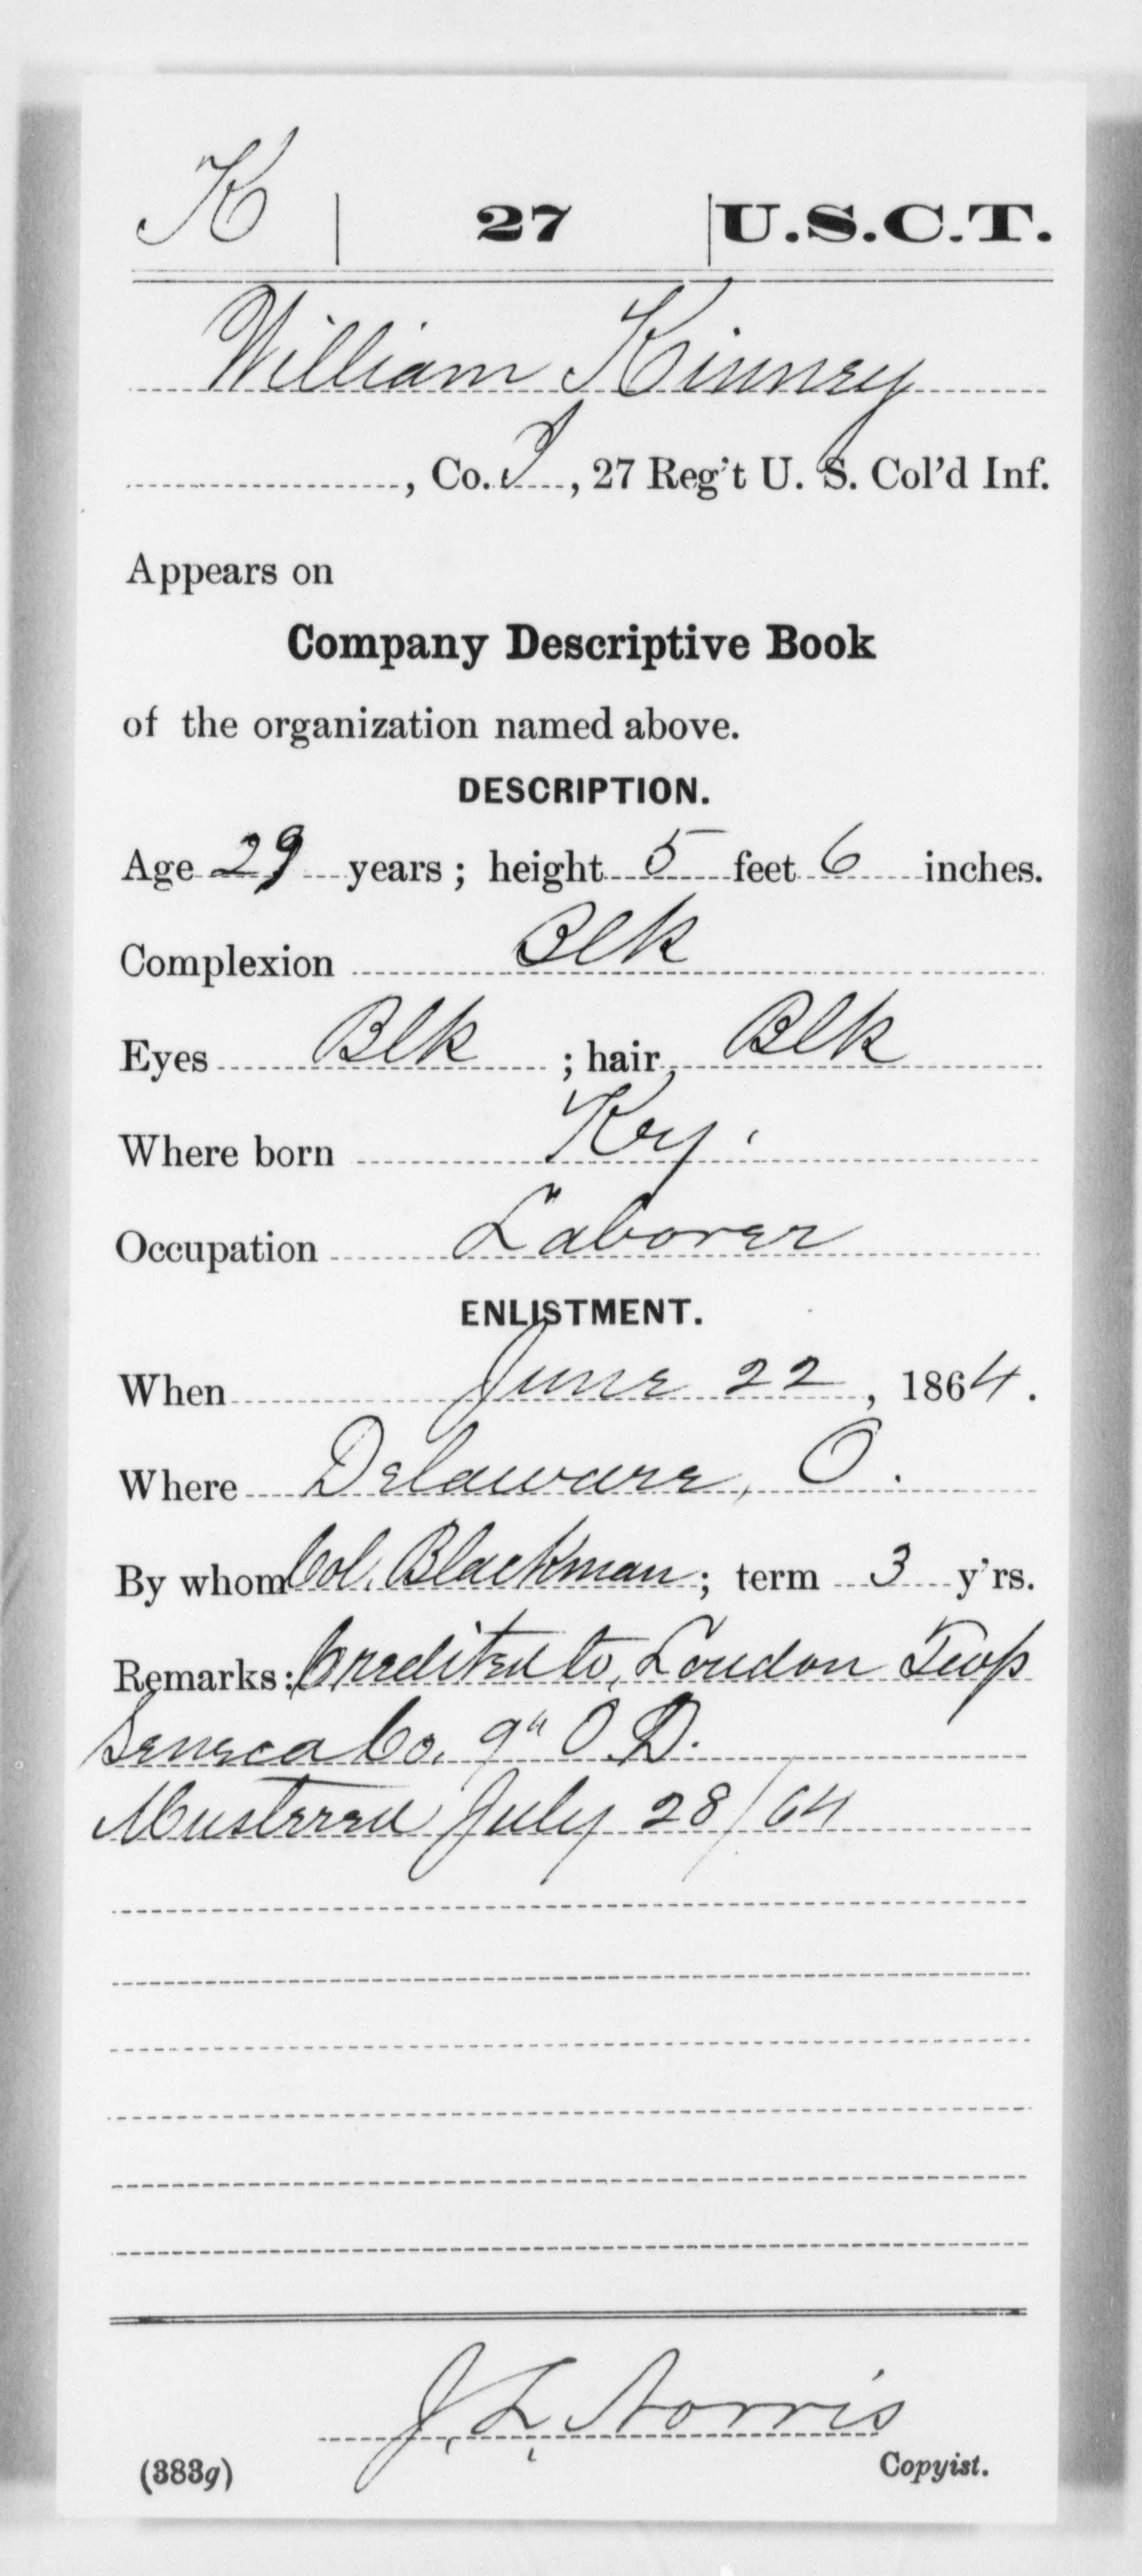 K | 27 | U.S.C.T.
William Kinney
, Co. I, 27 Reg't U. S. Col'd Inf.
Appears on
Company Descriptive Book
of the organization named above.
DESCRIPTION.
Age 29 years; height 5 feet 6 inches.
Complexion Blk
Eyes Blk ; hair Blk
Where born Ky.
Occupation Laborer
ENLISTMENT.
When June 22, 1864.
Where Delaware, O.
By whom Col. Blackman; term 3 y'rs.
Remarks: Credited to Loudon Twp
Seneca Co. 9" O. D.
Mustered July 28/64
J. L. Norris
(383g) Copyist.